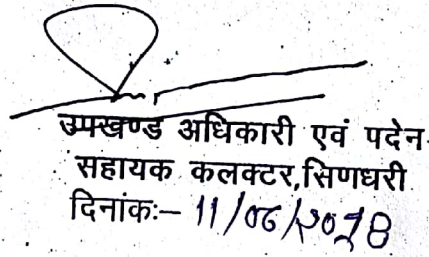 उपखण्ड अधिकारी एवं पदेन
सहायक कलक्टर,सिणधरी
दिनांकः– 11/06/2018